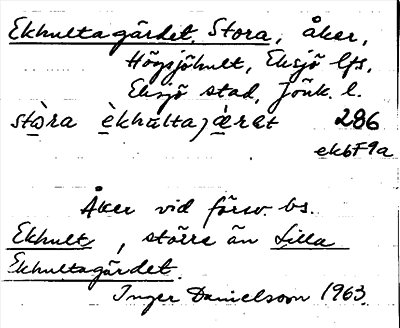 Ekhultagärdet, Stora, åker,
Högsjöhult, Eksjö lfs,
Eksjö stad, Jönk. l.
stò̱ra è̱khu̱lta jæ̱̀rət 286
ek6F9a
Åker vid försv. bs.
Ekhult, större än Lilla
Ekhultagärdet.
Inger Danielsson 1963.